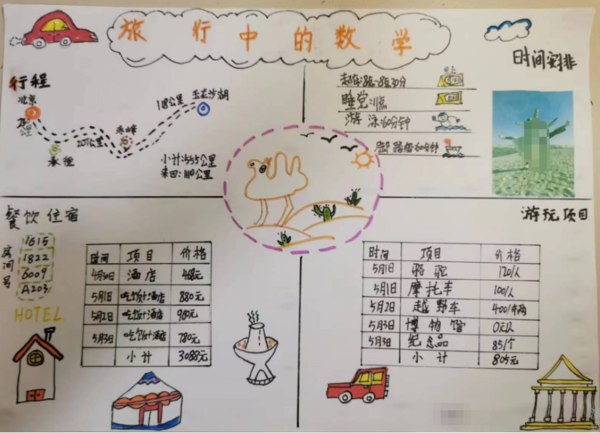 旅行中的数学
行程
北京
承德
赤峰
207公里
181公里
玉龙沙湖
小计:555公里
来回:1110公里
时间安排
睡觉11点
游泳60分钟
餐饮住宿
房间号
1615
1822
6009
A203
HOTEL
时间 项目 价格
4月30日 酒店 448元
5月1日 吃饭+酒店 880元
5月2日 吃饭+酒店 980元
5月3日 吃饭+酒店 780元
小计 3088元
游玩项目
时间 项目 价格
5月1日 骆驼 170/人
5月1日 摩托车 100/人
5月2日 越野车 400/辆
5月3日 博物馆 0元/人
5月3日 纪念品 85/个
小计 805元